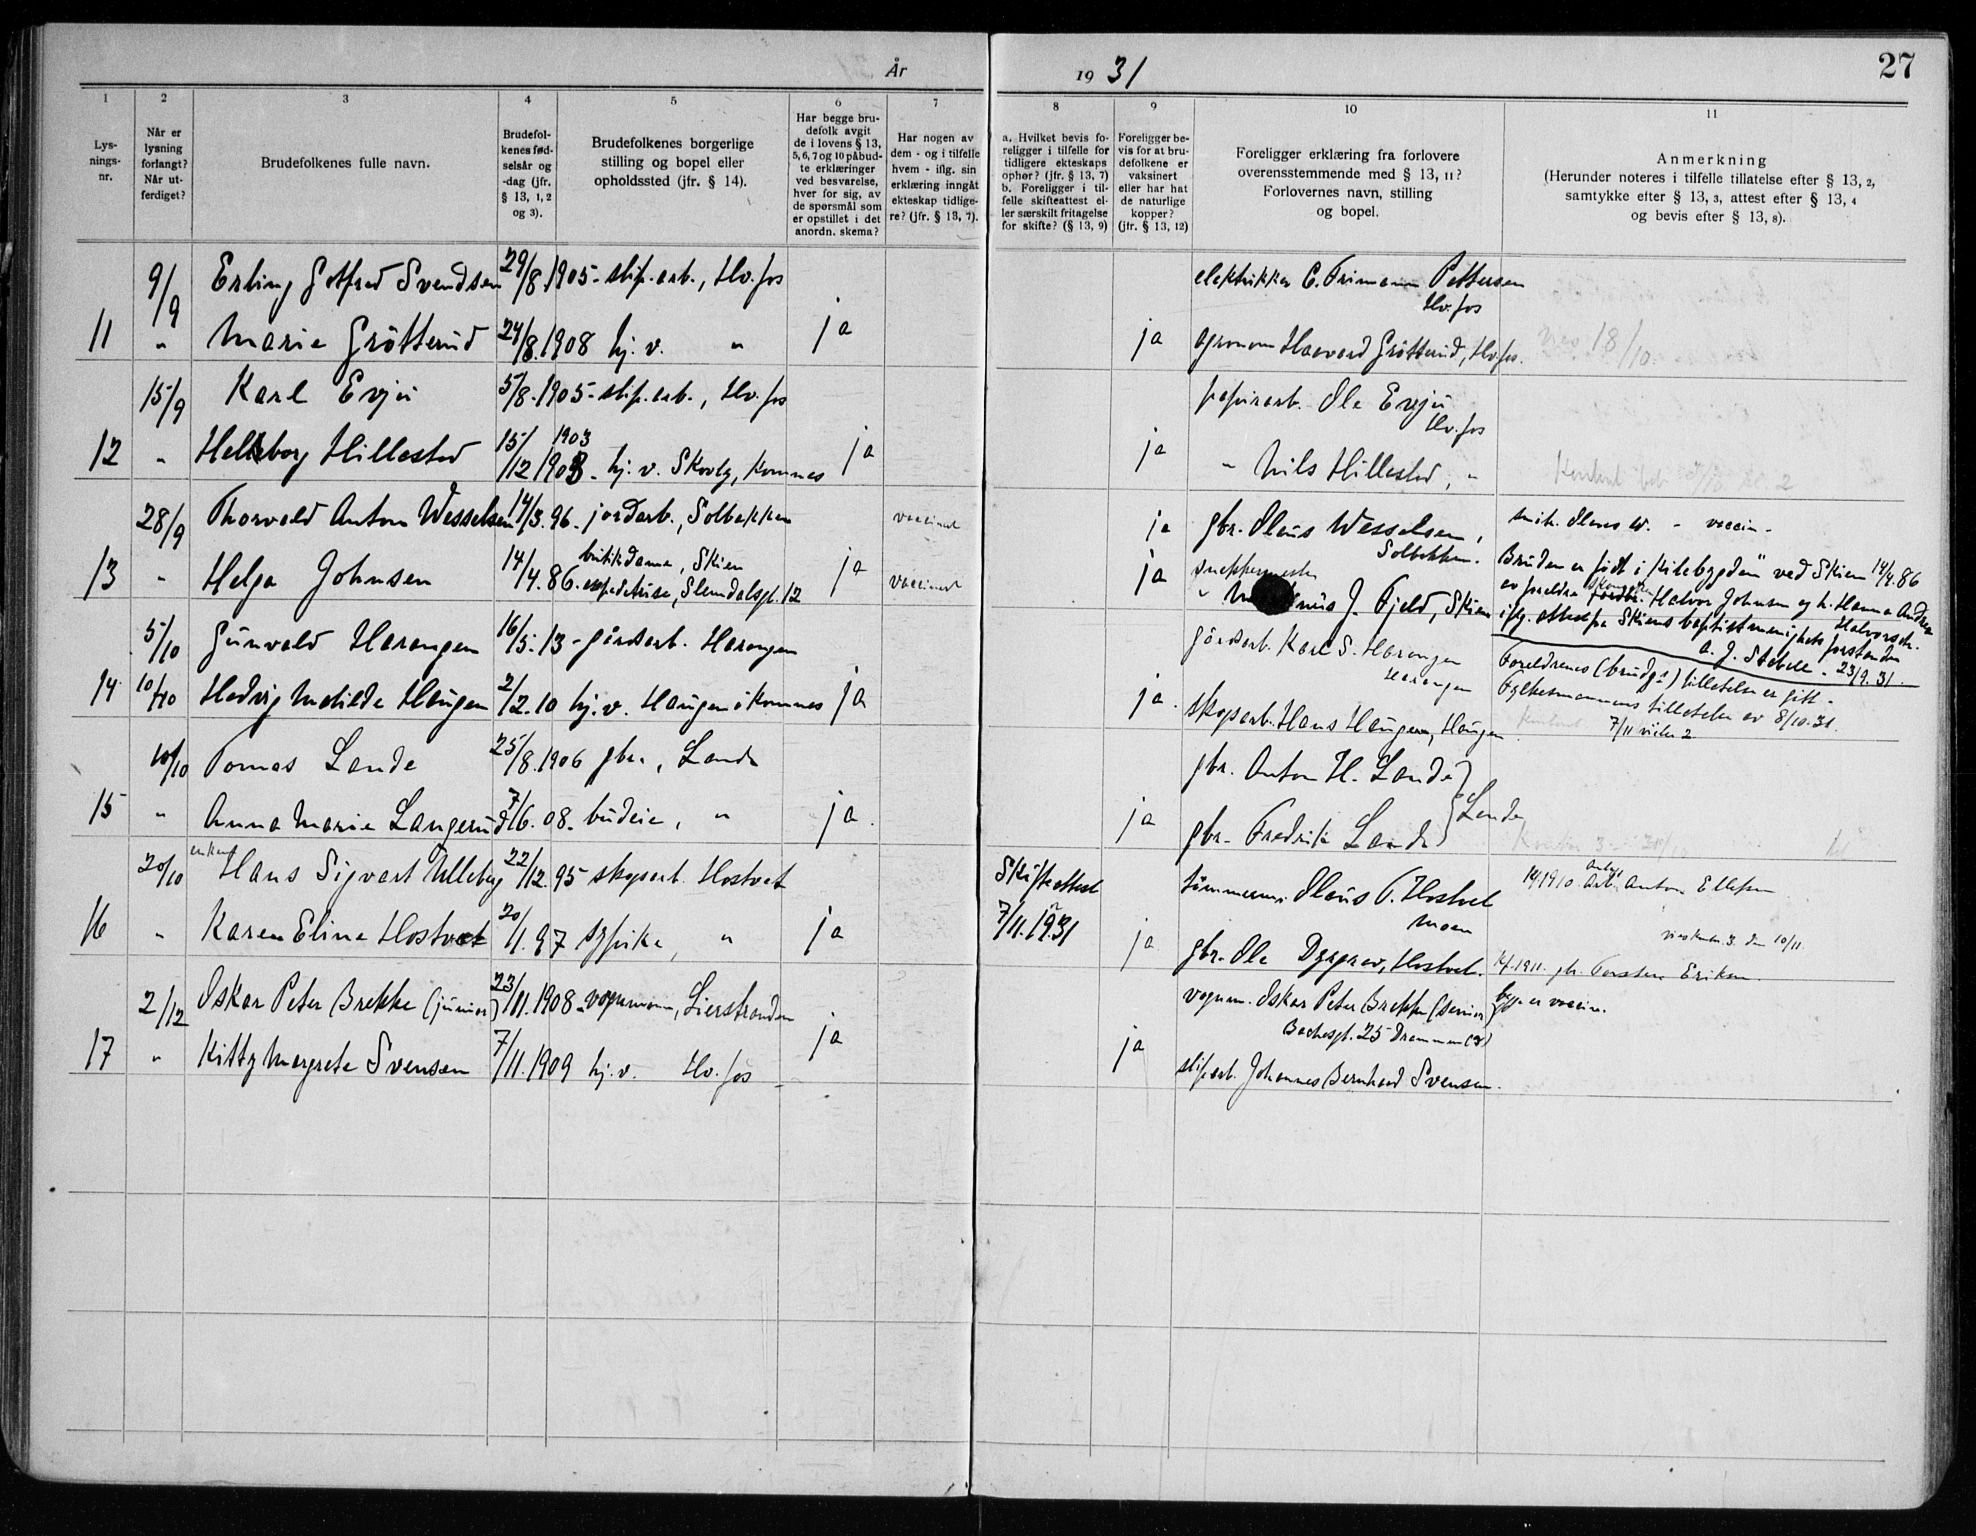 År 1931
27
1 2 3 4 5 6 7 8 9 10 11
Lys-
nings-
nr.
Når er
lysning
forlangt?
Når ut-
ferdiget?
Brudefolkenes fulle navn.
Brudefol-
kenes fød-
selsår og
-dag (jfr.
§ 13, 1, 2
og 3).
Brudefolkenes borgerlige
stilling og bopel eller
opholdssted (jfr. § 14).
Har begge bru-
defolk avgit
de i lovens § 13,
5, 6, 7 og 10 påbud-
te erklæringer
ved besvarelse,
hver for sig, av
de spørsmål som
er opstillet i det
anordn. skema?
Har nogen av
dem - og i tilfelle
hvem - iflg. sin
erklæring inngått
ekteskap tidlige-
re? (jfr. § 13, 7).
a. Hvilket bevis fo-
religger i tilfelle for
tidligere ekteskaps
ophør? (jfr. § 13, 7)
b. Foreligger i til-
felle skifteattest el-
ler særskilt fritagelse
for skifte? (§ 13, 9)
Foreligger be-
vis for at bru-
defolkene er
vaksinert
eller har hat
de naturlige
kopper?
(jfr. § 13, 12)
Foreligger erklæring fra forlovere
overensstemmende med § 13, 11?
Forlovernes navn, stilling
og bopel.
Anmerkning
(Herunder noteres i tilfelle tillatelse efter § 13, 2,
samtykke efter § 13, 3, attest efter § 13, 4
og bevis efter § 13, 8).
9/9 Erling Gotfred Svendsen 29/8.1905- slip.arb., Hv.fos elektriker C. Frimann Pettersen
Hv.fos
11 " Marie Grötterud 24/8.1908 hj.v. " ja ja agronom Haavard Grötterud, Hv.fos. 18/10
15/9 Karl Evju 5/8.1905- slip.arb., Hv.fos papirarb. Ole Evju
Hv.fos
1903
12 " Hellborg Hillestad 15/12 1903- hj.v. Skovly, Komnes ja ja " Nils Hillestad, "
28/9 Thorvald Anton Wesselsen 14/3.96- jordarb., Solbakken vaccinert ja gbr. Olaus Wesselsen, Solbakken. smih. Olaves W. - vaccin-
butikdame, Skien
13 " Helga Johnsen 14/4.86- expeditrise, Slemdalsgt. 12 ja vaccinert ja J. Fjeld, Skien
Bruden er født i Kilebygden" ved Skien 14/4.86
av foreldre Halvor Johnsen og h. Hanna Andrea
Halvorsdr.
iflg. attest fra Skiens baptistmenighets forstander
A. J. Stebell - 23/9.31.
5/10 Gunvald Harangen 16/5.13- gårdsarb. Harangen gårdsarb. Karl S. Harangen
Harangen
Foreldrenes (brudg.s) tillatelse er gitt-
14 10/10 Hedvig Matilde Haugen 2/2.10 hj.v. Haugen i Komnes ja ja. skogsarb. Hans Haugen, Haugen
Fylkesmannens tillatelse av 8/10.31.
10/10 Tomas Lande 25/8.1906 gbr., Lande gbr. Anton H. Lande
15 " Anna Marie Langerud 7/6.08- budeie, " ja. ja gbr. Fredrik Lande } Lande
20/10 enkem. Hans Sigvart Ulleberg 22/12.95 skogsarb. Hostvet Skifteattest tömmerm. Olaus T. Hostvet
Moen
14/1910 Anton Ellefsen
16 " Karen Eline Hostvet 20/1.97 sypike, " ja 7/11.1931 ja gbr. Ole Dysgrav, Hostvet.
10/11.
14/1911. gbr. Torsten Eriksen
2/12 Oskar Peter Brekke (junior) 23/11.1908- vognmann, Lierstranden vognm. Oskar Peter Brekke (senior)
Bachesgt. 25 Drammen
begge er vaccin.
17 " Kitty Margrete Svensen 7/11.1909 hj.v. Hv.fos ja ja sliparb. Johannes Bernhard Svensen.